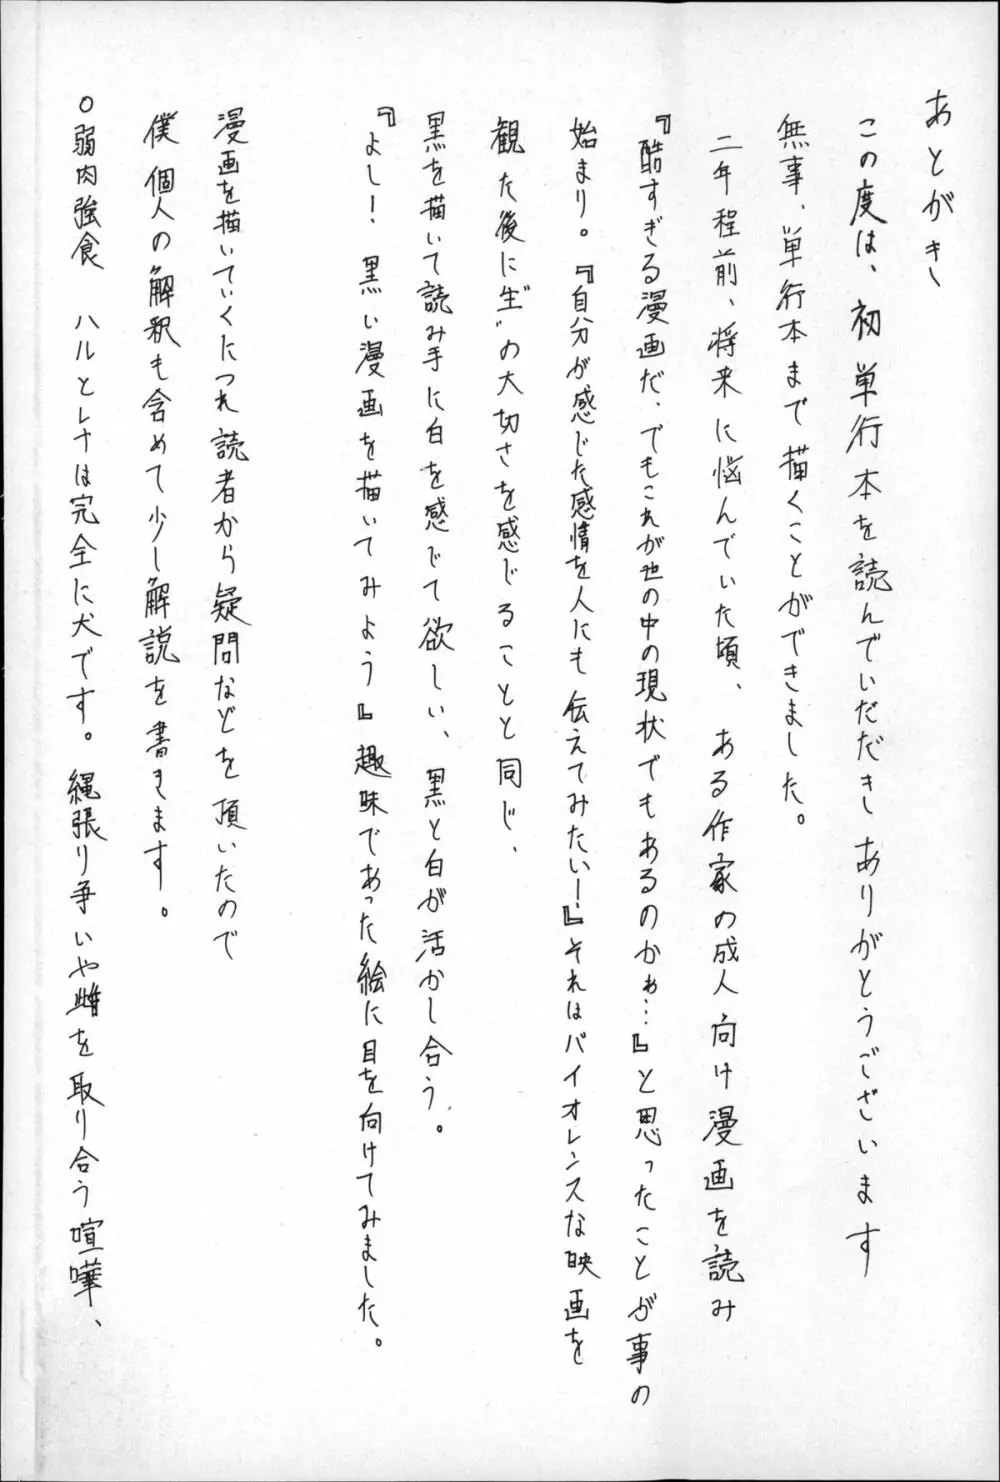 あとがき
この度は、初単行本を読んでいただきありがとうございます
無事、単行本まで描くことができました。
二年程前、将来に悩んでいた頃、ある作家の成人向け漫画を読み
『酷すぎる漫画だ、でもこれが世の中の現状でもあるのかぁ…』と思ったことが事の
始まり。『自分が感じた感情を人にも伝えてみたい！』それはバイオレンスな映画を
観た後に“生”の大切さを感じることと同じ、
黒を描いて読み手に白を感じて欲しい、黒と白が活かし合う。
『よし！黒い漫画を描いてみよう』趣味であった絵に目を向けてみました。
漫画を描いていくにつれ読者から疑問などを頂いたので
僕個人の解釈も含めて少し解説を書きます。
○弱肉強食　ハルとレナは完全に犬です。縄張り争いや雌を取り合う喧嘩、